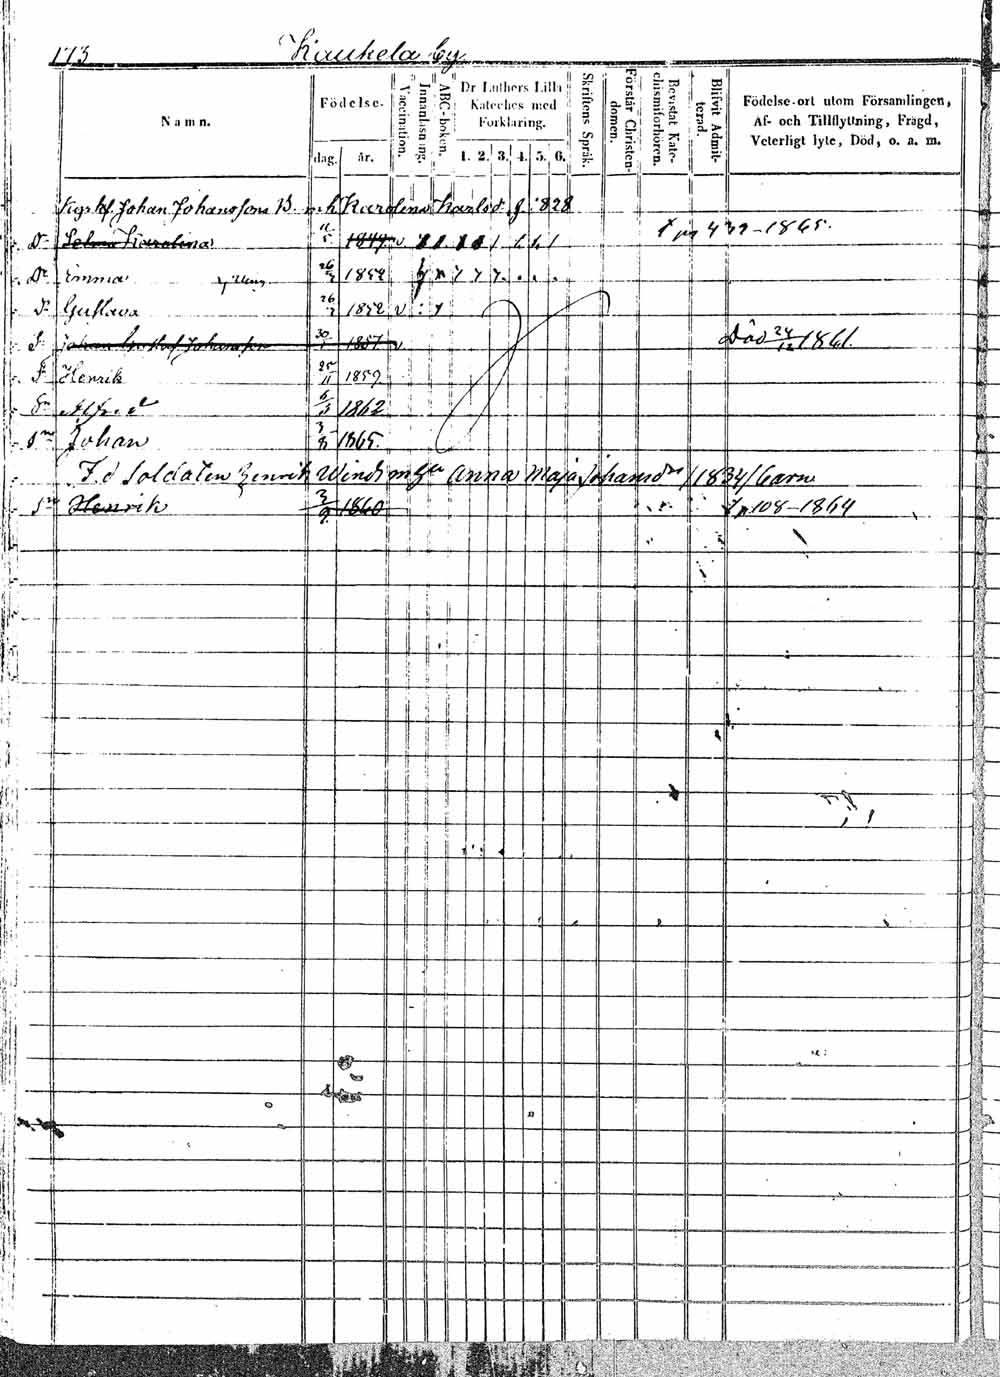 173 Kaukela by
Namn.
Födelse-
dag. år.
Vaccination.
Innanläsning.
ABC-boken.
Dr Luthers Lilla
Kateches med
Förklaring.
1. 2. 3. 4. 5. 6.
Skriftens Språk.
Förstår Christen-
domen.
Bevistat Kate-
chismiförhören.
Blifvit Admit-
terad.
Födelse-ort utom Församlingen,
Af- och Tillflyttning, Frägd,
Veterligt lyte, Död, o. a. m.
Johan Johanssons Karolina Karlsd. 828
Dr Karolina 11/5 1849 439-1865.
Dr Emma 26/7 1852
Dr Gustava 26/7 1852
S. Johan Gustaf Johansson 30/1 1857 Död 24/12 1861.
S. Henrik 25/11 1859
Sn Alfred 6/3 1862
Sn Johan 3/8 1865.
F. d Soldaten Henrik Wind Anna Maja Johansdr /1834/ barn
Sn Henrik 3/9 1860 108-1864